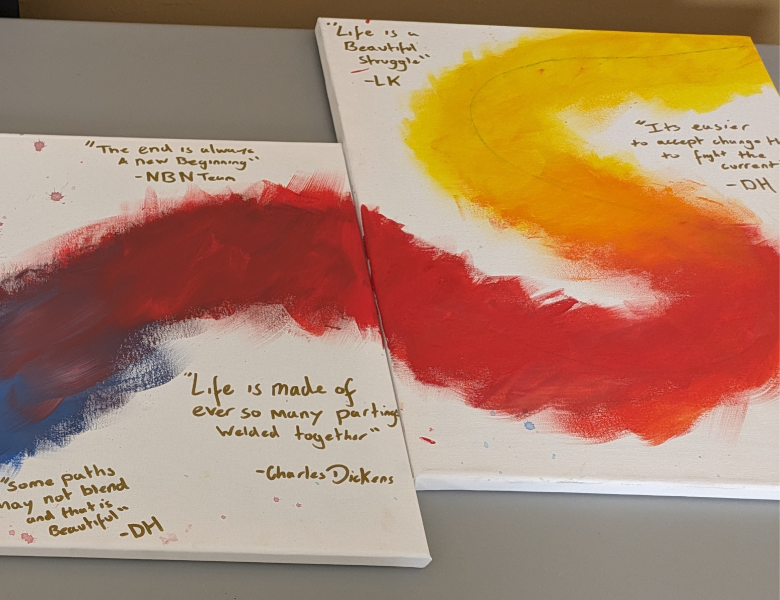 "Life is a
Beautiful
Struggle"
-LK
"Its easier
to accept change
to fight the
current
-DH
"The end is always
A new Beginning"
-NBN Team
"Life is made of
ever so many partings
Welded together"
-Charles Dickens
"Some paths
may not blend
and that is
Beautiful"
-DH